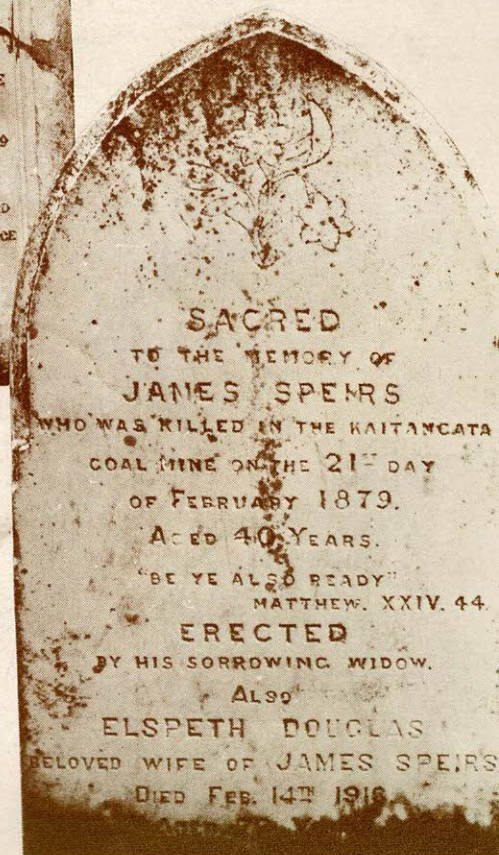 E
9
D
CE
SACRED
TO THE MEMORY OF
JAMES SPEIRS
WHO WAS KILLED IN THE KAITANGATA
COAL MINE ON THE 21ST DAY
OF FEBRUARY 1879.
AGED 40 YEARS.
"BE YE ALSO READY"
MATTHEW. XXIV. 44.
ERECTED
BY HIS SORROWING WIDOW.
ALSO
ELSPETH DOUGLAS
BELOVED WIFE OF JAMES SPEIRS
DIED FEB. 14TH 1916